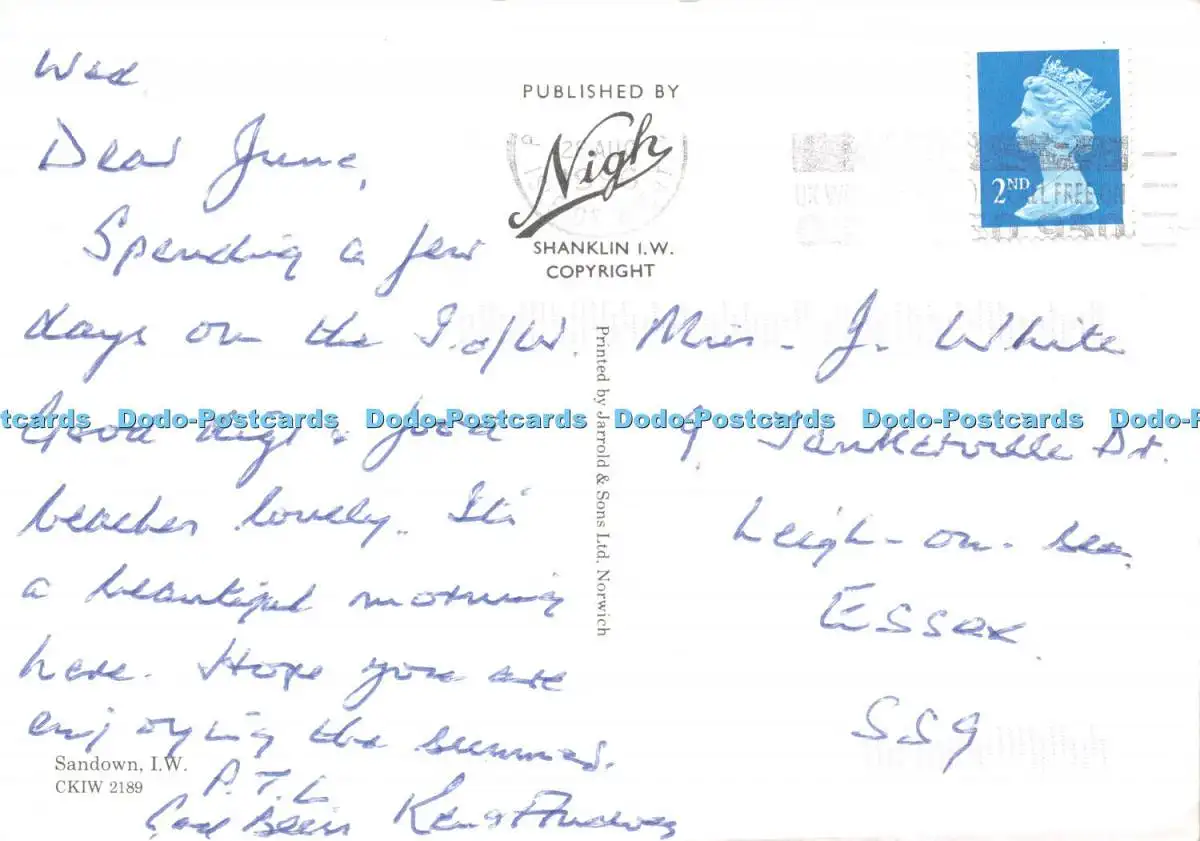 Wed
Dear June,
Spending a few
days on the I.o/W.
Good digs & food
beaches lovely. It's
a beautiful morning
here. Hope you are
enjoying the summer.
P.T.L
God Bless Ken
PUBLISHED BY
Nigh
SHANKLIN I.W.
COPYRIGHT
Printed by Jarrold & Sons Ltd. Norwich
2ND
Miss. J. White
9 Tankerville Dr.
Leigh-on-Sea
Essex
SS9
Sandown, I.W.
CKIW 2189
Dodo-Postcards Dodo-Postcards Dodo-Postcards Dodo-Postcards